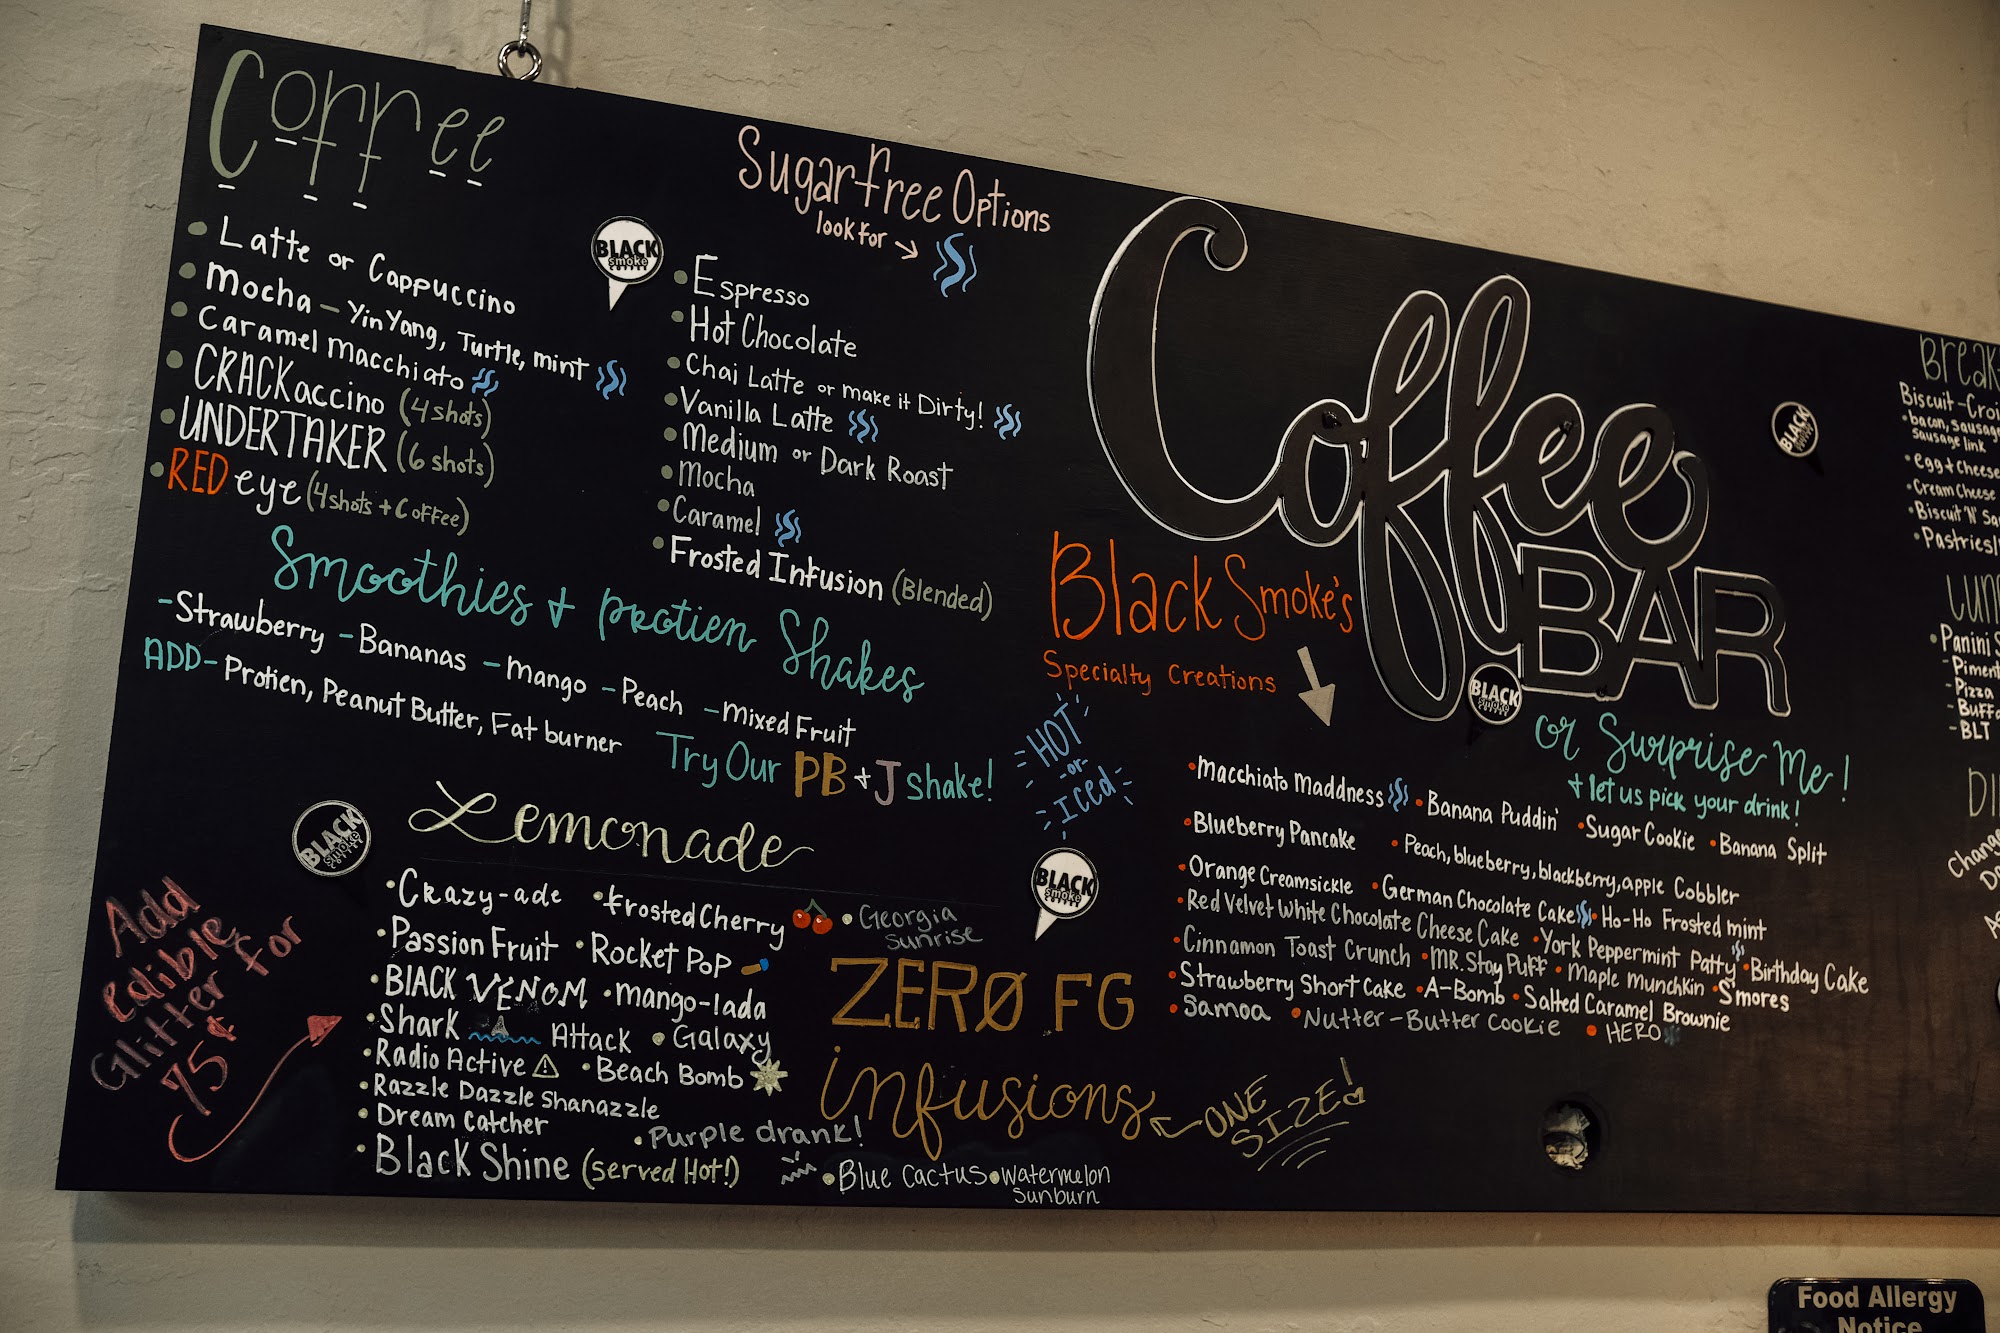 Coffee
• Latte or Cappuccino
• Mocha – Yin Yang, Turtle, mint
• Caramel Macchiato
• CRACKaccino (4 shots)
• UNDERTAKER (6 shots)
• RED eye (4 shots + Coffee)
BLACK
smoke
COFFEE
Sugar Free Options
look for →
• Espresso
• Hot Chocolate
• Chai Latte or make it Dirty!
• Vanilla Latte
• Medium or Dark Roast
• Mocha
• Caramel
• Frosted Infusion (Blended)
Smoothies + protien Shakes
– Strawberry – Bananas – Mango – Peach – Mixed Fruit
ADD – Protien, Peanut Butter, Fat burner
Try Our PB + J shake!
Lemonade
BLACK
smoke
COFFEE
• Crazy-ade • frosted Cherry • Georgia Sunrise
• Passion Fruit • Rocket PoP
• BlACK VENOM • mango-lada
• Shark Attack • Galaxy
• Radio Active • Beach Bomb
• Razzle Dazzle Shanazzle
• Dream catcher
• Purple drank!
• Black Shine (served Hot!)
• Blue Cactus • watermelon sunburn
Add
edible
Glitter for
75¢
BLACK
smoke
COFFEE
ZERØ FG
infusions
ONE
SIZE!
HOT
-or-
Iced
Coffee
BAR
BLACK
smoke
COFFEE
Black Smoke's
Specialty Creations
or Surprise Me!
+ let us pick your drink!
• Macchiato Maddness • Banana Puddin' • Sugar Cookie • Banana Split
• Blueberry Pancake • Peach, blueberry, blackberry, apple Cobbler
• Orange Creamsickle • German Chocolate Cake • Ho-Ho Frosted mint
• Red Velvet White Chocolate Cheese Cake • York Peppermint Patty • Birthday Cake
• Cinnamon Toast Crunch • MR. Stay Puff • Maple Munchkin • S'mores
• Strawberry Short Cake • A-Bomb • Salted Caramel Brownie
• Samoa • Nutter-Butter Cookie • HERO
BLACK
Break
Biscuit - Croi
• bacon, sausage
Sausage link
• egg + cheese
• Cream Cheese
• Biscuit 'N' Sa
• Pastries/
Lun
• Panini S
- Piment
- Pizza
- Buff
- BLT
DI
Food Allergy
Notice